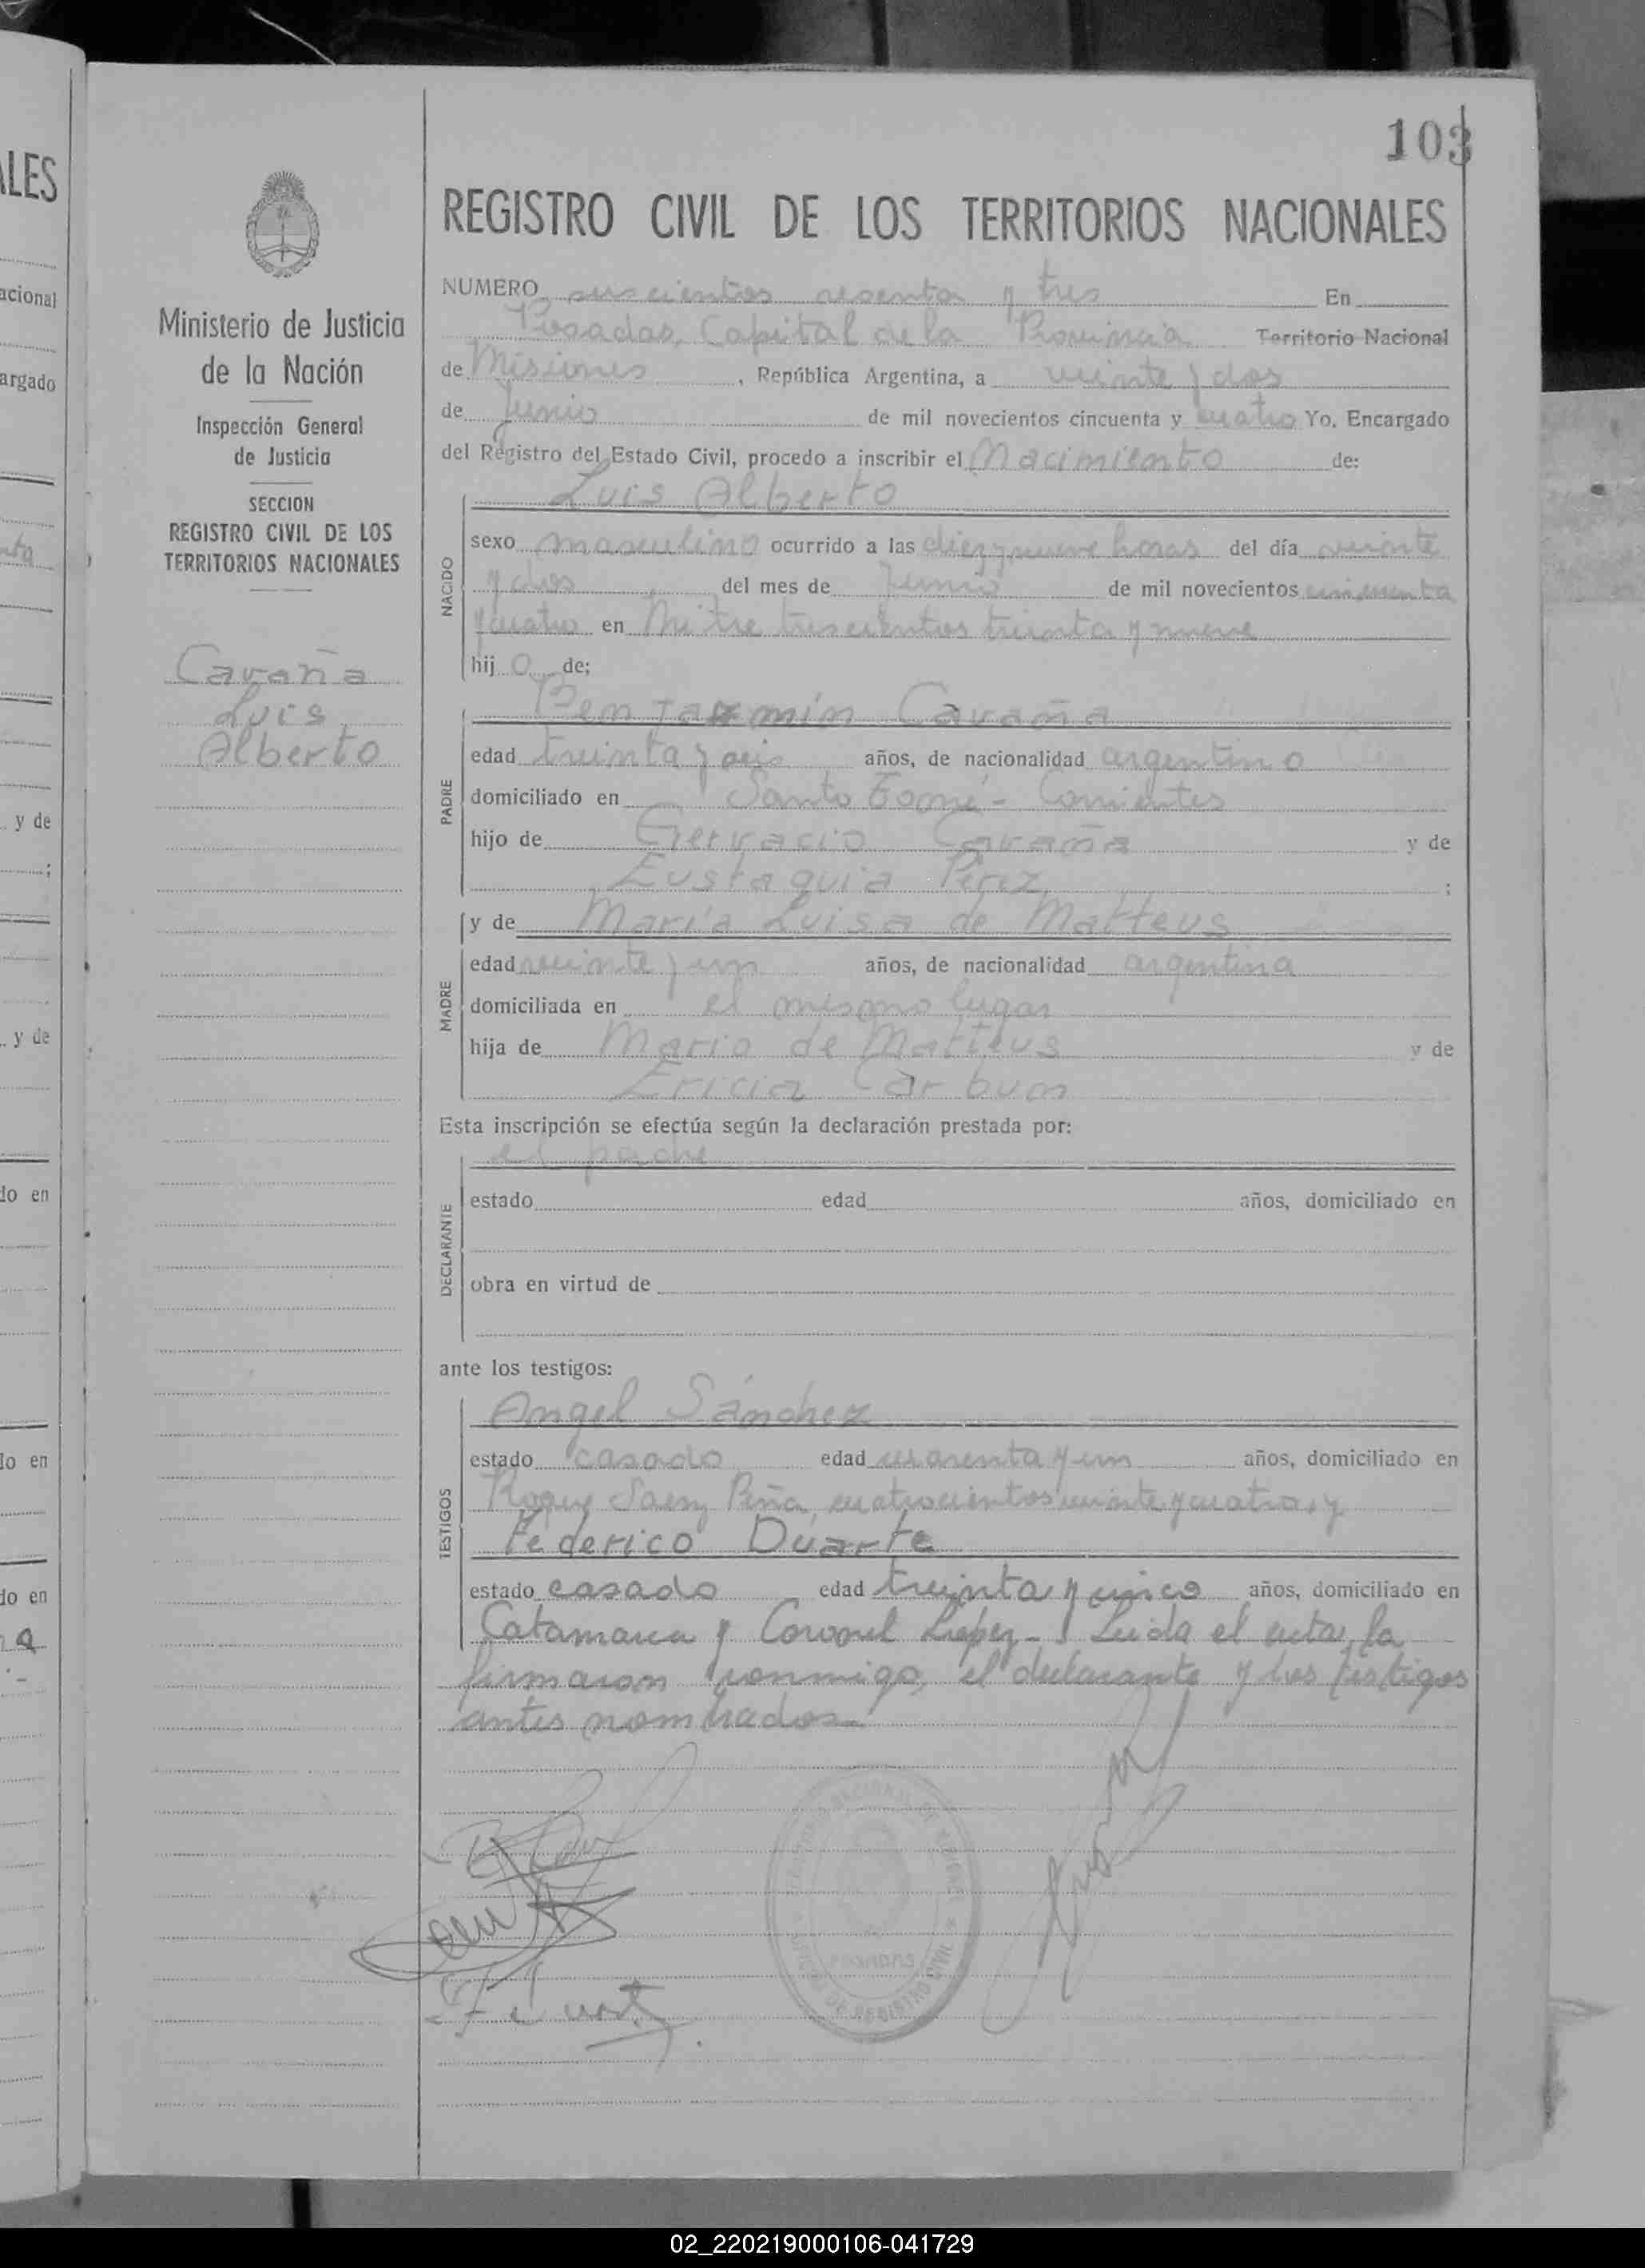 103
LES
acional
argado
y de
;
y de
lo en
lo en
lo en
Ministerio de Justicia
de la Nación
Inspección General
de Justicia
SECCION
REGISTRO CIVIL DE LOS
TERRITORIOS NACIONALES
Cavaña
Luis
Alberto
REGISTRO CIVIL DE LOS TERRITORIOS NACIONALES
NUMERO seiscientos sesenta y tres En
Posadas, Capital de la Provincia Territorio Nacional
de Misiones, República Argentina, a veinte y dos
de Junio de mil novecientos cincuenta y cuatro Yo, Encargado
del Registro del Estado Civil, procedo a inscribir el Nacimiento de:
Luis Alberto
NACIDO
sexo masculino ocurrido a las diez y nueve horas del día veinte
y dos del mes de Junio de mil novecientos cincuenta
y cuatro en Mitre trescientos treinta y nueve
hij o de;
Benjamin Cavaña
PADRE
edad treinta y seis años, de nacionalidad argentino
domiciliado en Santo Tomé - Corrientes
hijo de Gervacio Cavaña y de
Eustaquia Pérez ;
y de María Luisa de Matteus
MADRE
edad veinte y un años, de nacionalidad argentina
domiciliada en el mismo lugar
hija de Mario de Matteus y de
Ericia Carbum
Esta inscripción se efectúa según la declaración prestada por:
el padre
DECLARANTE
estado edad años, domiciliado en
obra en virtud de
ante los testigos:
Angel Sánchez
TESTIGOS
estado casado edad cuarenta y un años, domiciliado en
Roque Saenz Peña cuatrocientos veinte y cuatro, y
Federico Duarte
estado casado edad treinta y cinco años, domiciliado en
Catamarca y Coronel López - Leida el acta, la
firmaron conmigo, el declarante y los testigos
antes nombrados.
POSADAS
OFICINA DE REGISTRO CIVIL
02_220219000106-041729